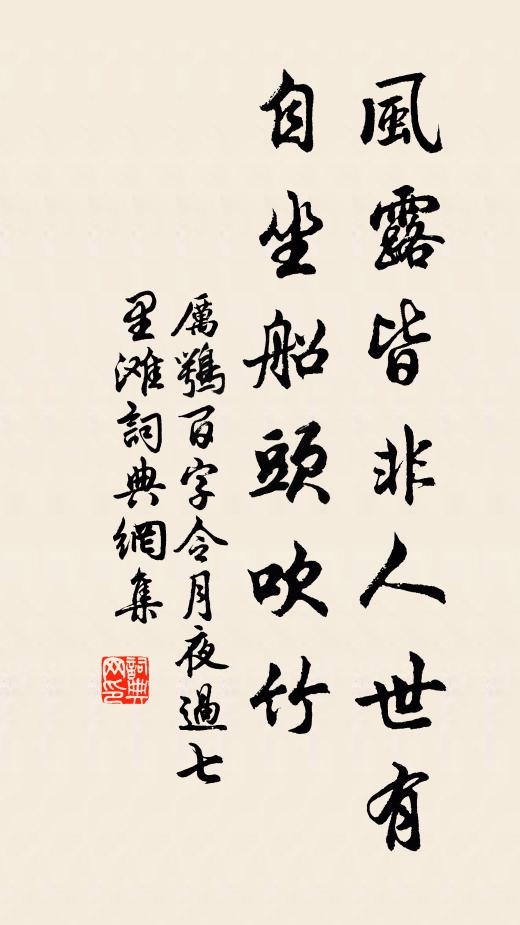 風露皆非人世有
自坐船頭吹竹
厲鶚百字令月夜過七
里灘詞典網集
詞典
网印